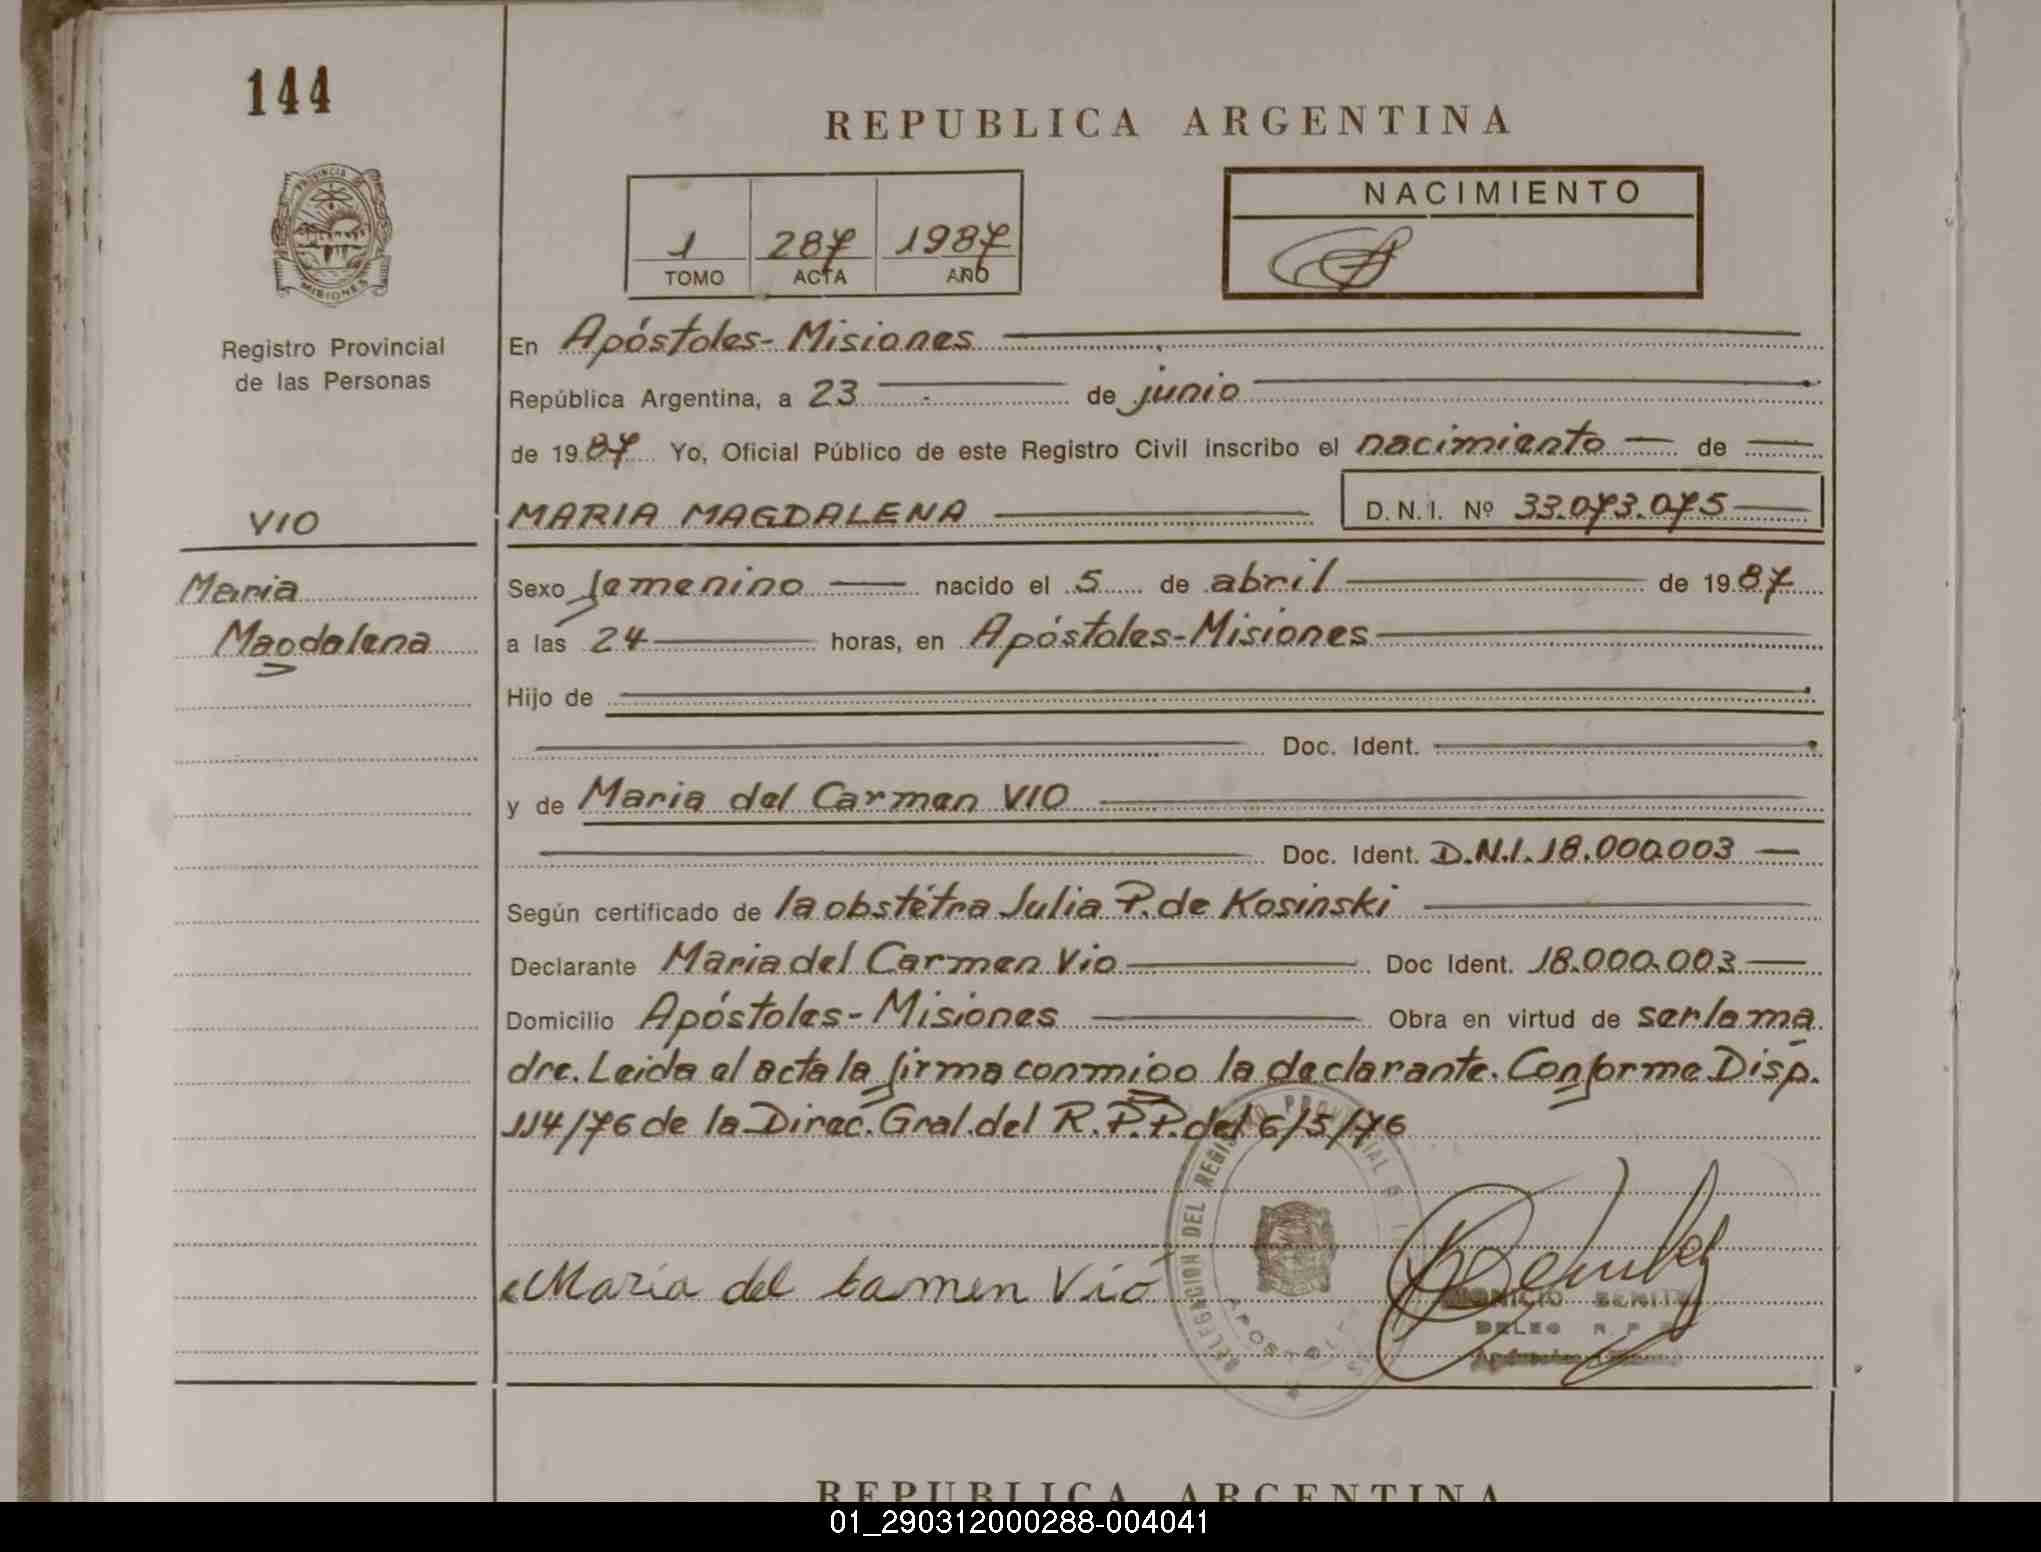 144
REPUBLICA ARGENTINA
PROVINCIA
MISIONES
NACIMIENTO
1 287 1987
TOMO ACTA AÑO
Registro Provincial
de las Personas
En Apóstoles-Misiones
República Argentina, a 23 de junio
de 1987 Yo, Oficial Público de este Registro Civil inscribo el nacimiento de
VIO
MARIA MAGDALENA D.N.I. Nº 33.073.075
Maria
Magdalena
Sexo femenino nacido el 5 de abril de 1987
a las 24 horas, en Apóstoles-Misiones
Hijo de
Doc. Ident.
y de Maria del Carmen VIO
Doc. Ident. D.N.I. 18.000.003
Según certificado de la obstétra Julia P. de Kosinski
Declarante Maria del Carmen Vio Doc Ident. 18.000.003
Domicilio Apóstoles-Misiones Obra en virtud de ser la ma
dre. Leida el acta la firma conmigo la declarante. Conforme Disp.
114/76 de la Direc. Gral. del R.P.P. del 6/5/76
DELEGACION DEL REGISTRO PROVINCIAL
APOSTOLES
Maria del Carmen Vió
BENITEZ
DELEG R. P. P.
REPUBLICA ARGENTINA
01_290312000288-004041